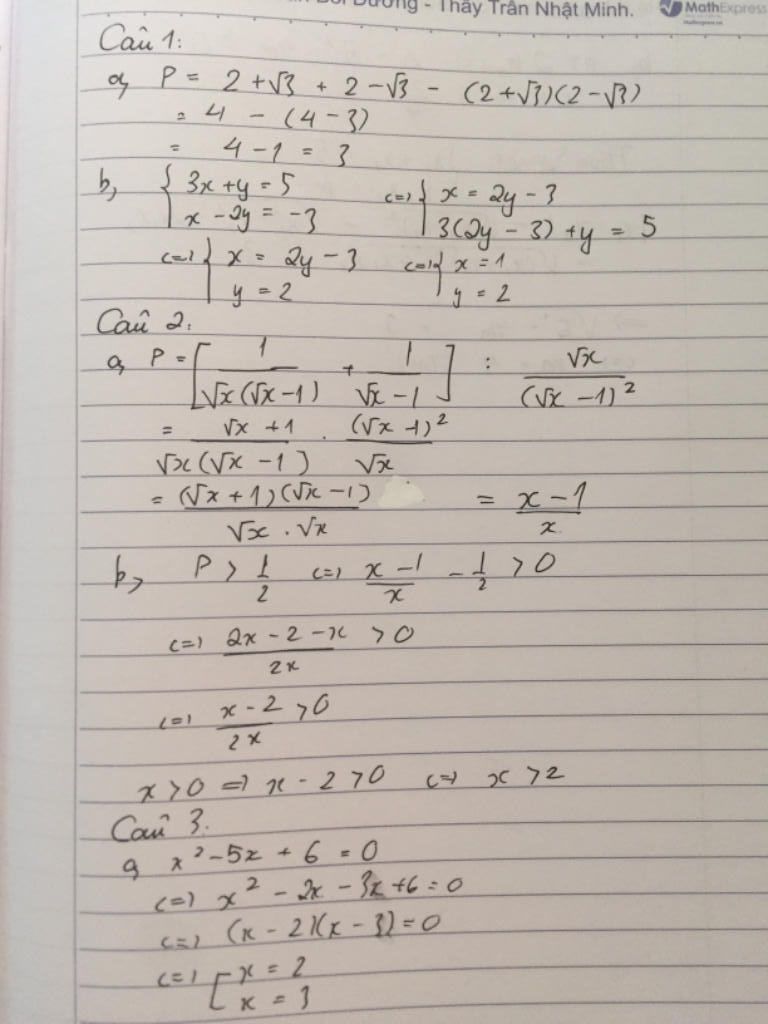 Bồi Dưỡng - Thầy Trần Nhật Minh. MathExpress
Câu 1:
a, P = 2 + √3 + 2 - √3 - (2 + √3)(2 - √3)
= 4 - (4 - 3)
= 4 - 1 = 3
b, { 3x + y = 5 <=> { x = 2y - 3
x - 2y = -3 3(2y - 3) + y = 5
<=> { x = 2y - 3 <=> { x = 1
y = 2 y = 2
Câu 2:
a, P = [ 1/(√x(√x - 1)) + 1/(√x - 1) ] : √x/(√x - 1)²
= (√x + 1)/(√x(√x - 1)) . (√x - 1)²/√x
= (√x + 1)(√x - 1)/(√x . √x) = (x - 1)/x
b, P > 1/2 <=> (x - 1)/x - 1/2 > 0
<=> (2x - 2 - x)/2x > 0
<=> (x - 2)/2x > 0
x > 0 => x - 2 > 0 <=> x > 2
Câu 3.
a, x² - 5x + 6 = 0
<=> x² - 2x - 3x + 6 = 0
<=> (x - 2)(x - 3) = 0
<=> [ x = 2
x = 3